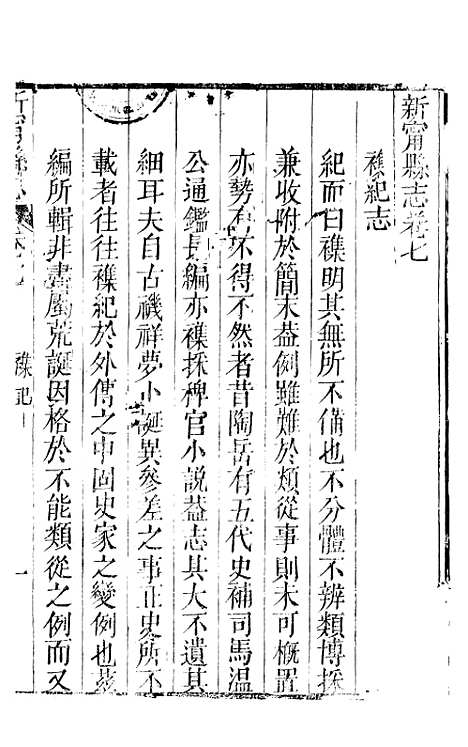 新甯縣志卷七
襍紀志
紀而曰襍明其無所不備也不分體不辨類博採
兼收附於簡末葢例雖難於類從事則未可概置
亦勢有不得不然者昔陶岳有五代史補司馬温
公通鑑長編亦襍採稗官小説葢志其大不遺其
細耳夫自古禨祥夢卜誕異參差之事正史所不
載者往往襍紀於外傳之中固史家之變例也茲
編所輯非盡屬荒誕因格於不能類從之例而又
襍記
一